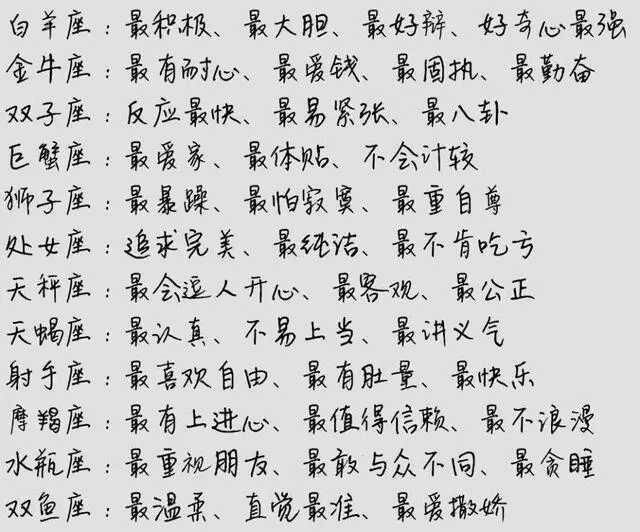 白羊座：最积极、最大胆、最好辩、好奇心最强
金牛座：最有耐心、最爱钱、最固执、最勤奋
双子座：反应最快、最易紧张、最八卦
巨蟹座：最爱家、最体贴、不会计较
狮子座：最暴躁、最怕寂寞、最重自尊
处女座：追求完美、最纯洁、最不肯吃亏
天秤座：最会逗人开心、最客观、最公正
天蝎座：最认真、不易上当、最讲义气
射手座：最喜欢自由、最有肚量、最快乐
摩羯座：最有上进心、最值得信赖、最不浪漫
水瓶座：最重视朋友、最敢与众不同、最贪睡
双鱼座：最温柔、直觉最准、最爱撒娇